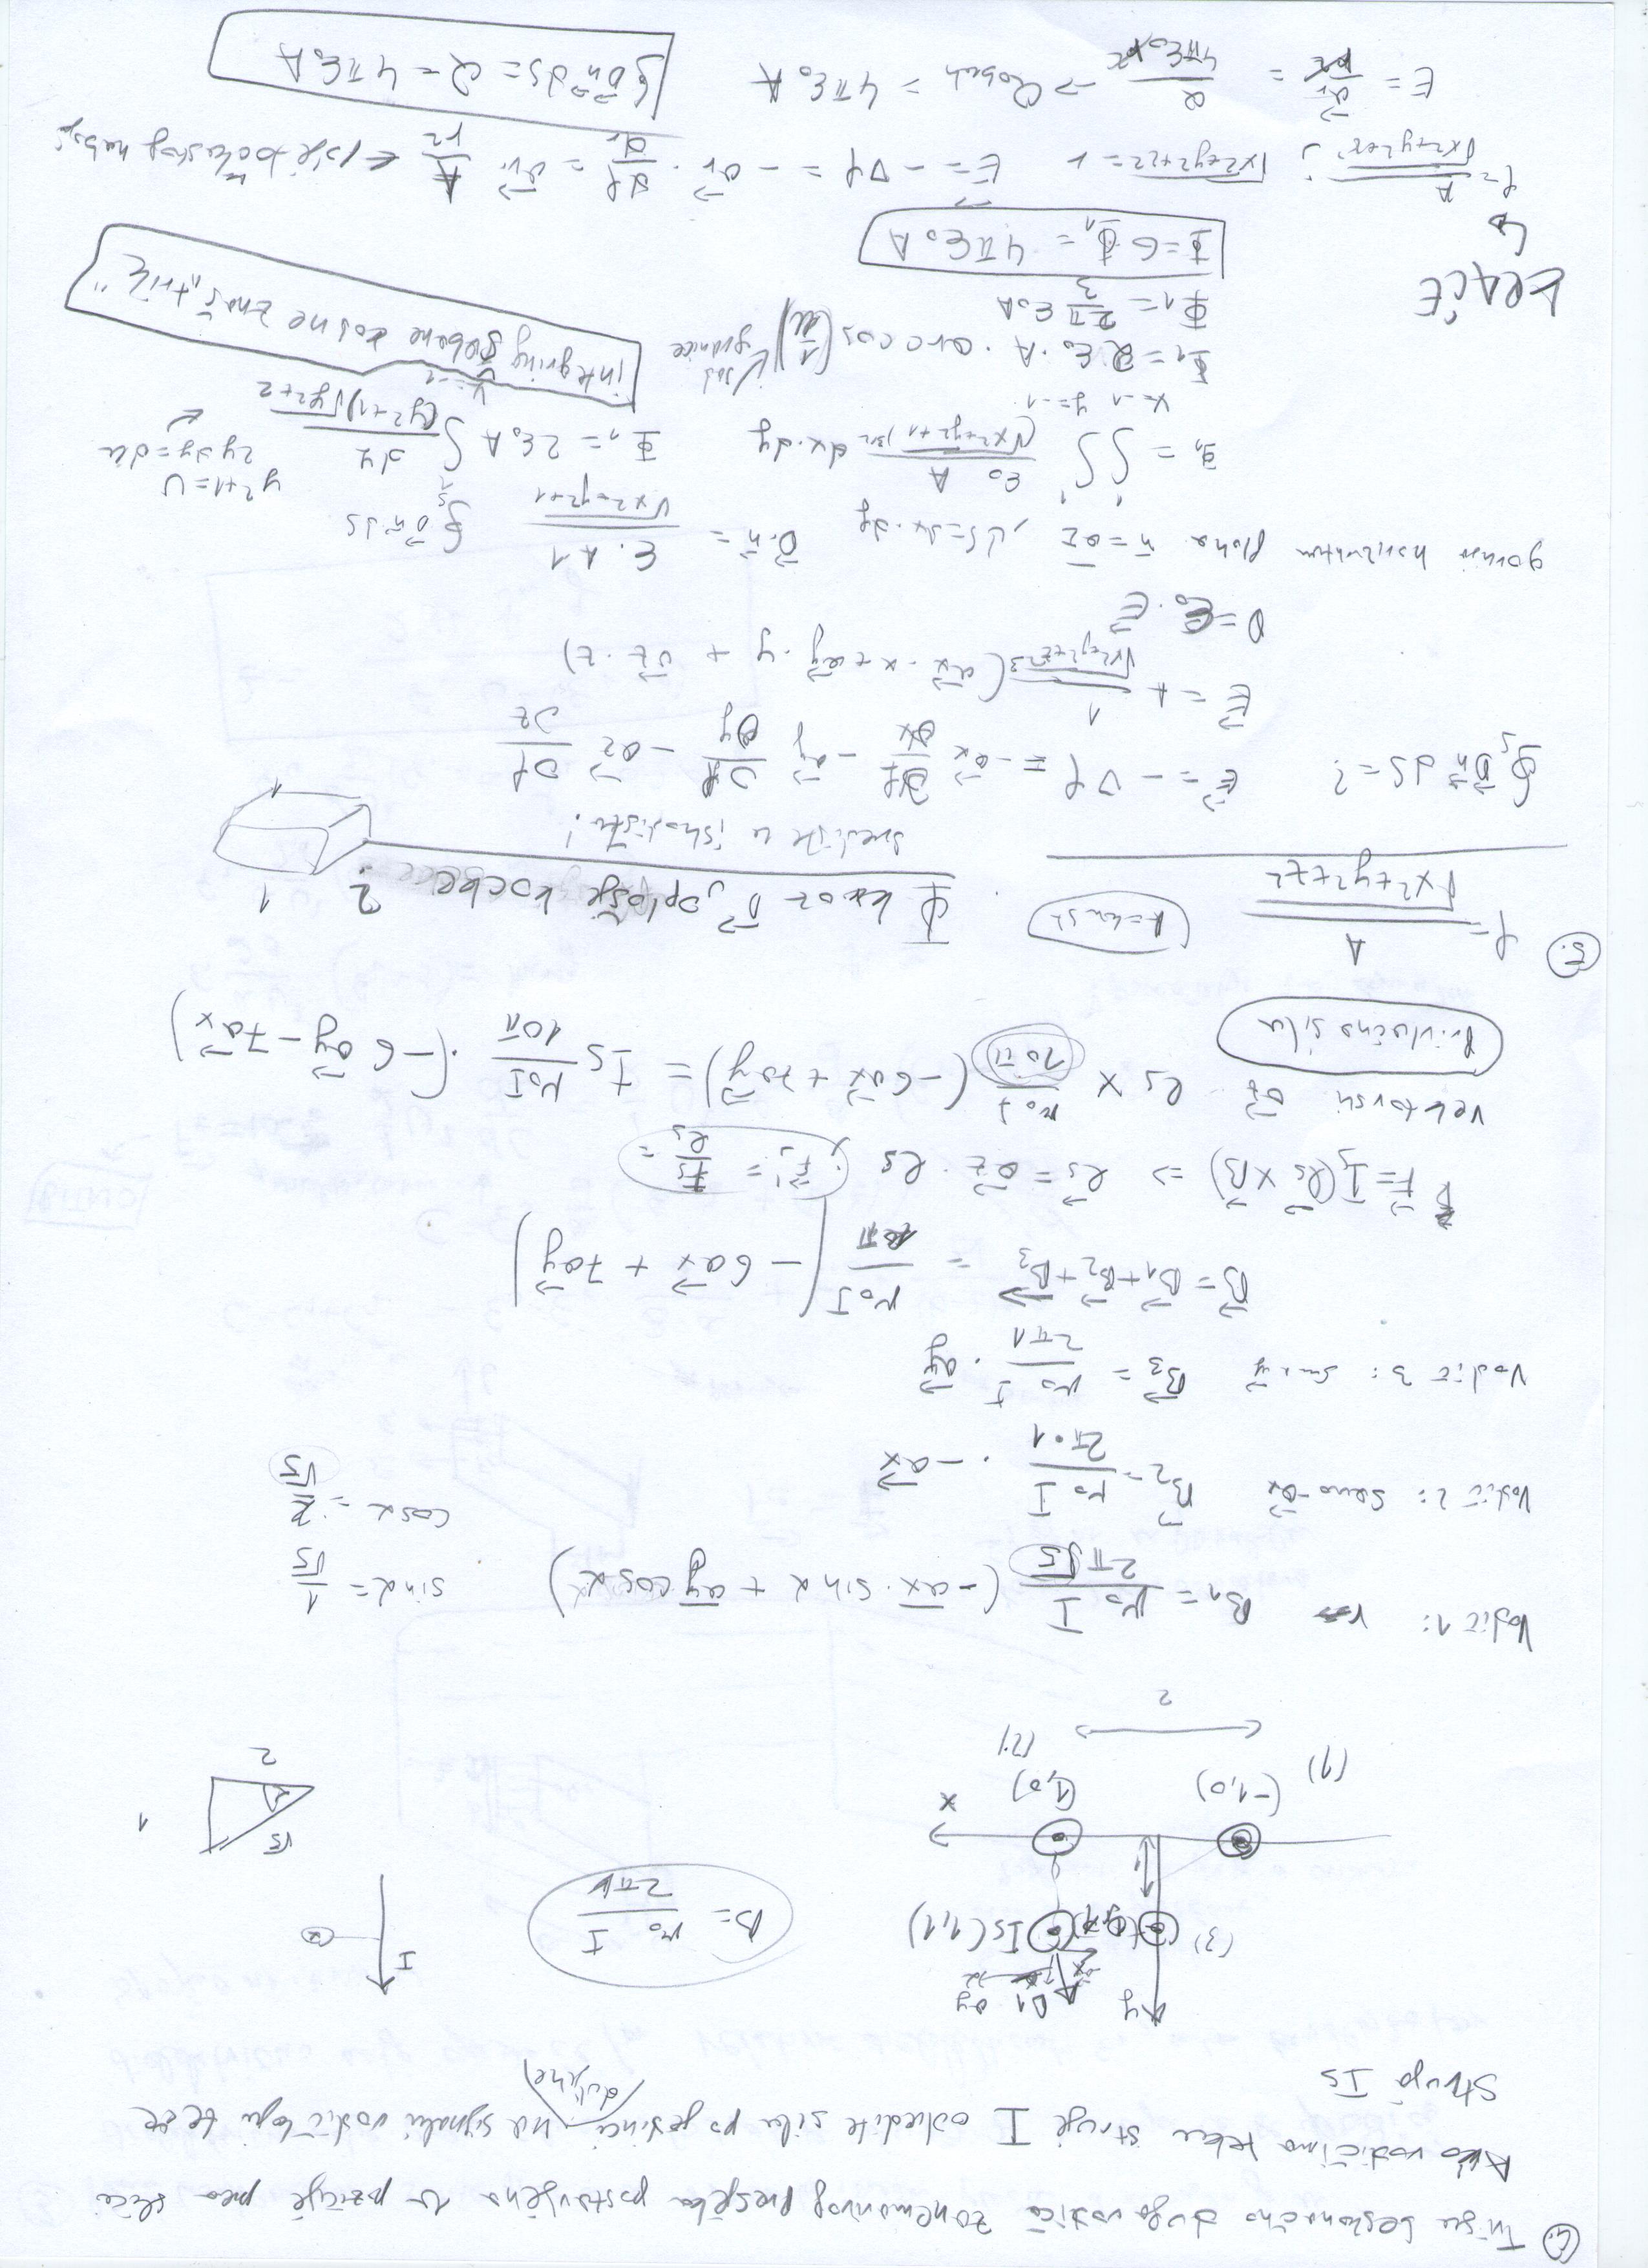 4. Tri su beskonačno duga vodiča zanemarivog presjeka postavljena u pozicije prea slici
Ako vodičima teku struje I odredite silu po jedinici duljine na signalni vodič koju teče
struja Is
y
a1 ay
(3) Is(1,1)
1
x
(-1,0) (1,0)
(1) (2)
2
B = μ0 I / 2πr
I
√5 α 1
2
Vodič 1: B1 = μ0 I / 2π√5 (-ax · sin α + ay cos α) sin α = 1/√5
Vodič 2: samo -ax B2 = μ0 I / 2π·1 · -ax cos α = 2/√5
Vodič 3: B3 = μ0 I / 2π1 · ay
B = B1 + B2 + B3 = μ0 I / 10π (-6ax + 7ay)
F = Is(ls × B) => ls = az · ls ; Fs' = Fs/ls =
vektorski az ls × μ0 I / 10π (-6ax + 7ay) = Is μ0 I / 10π · (-6ay - 7ax)
Privlačna sila
5. φ = A / √x²+y²+z² A=konst Φ kroz D, oplošje kocke ? 1
središte u ishodištu! 1
∮s D n dS = ? E = -∇φ = -ax ∂φ/∂x - ay ∂φ/∂y - az ∂φ/∂z
E = A 1 / √x²+y²+z² 3 (ax · x + ay · y + az · z)
D = ε0 · E
gornja horizontan ploha n = az , dS = dx · dy D·n = ε. A 1 / √x²+y²+1 ∮s D n dS
Φ1 = ∫ x=-1 1 ∫ y=-1 1 ε0 A / (√x²+y²+1)3/2 dx·dy Φ1 = 2ε0 A ∫ y=-1 1 dy / (y²+1)√y²+2 y²+1 = U
2y dy = du
Φ1 = 2 ε0 · A · arccos(1/u) sad granice integring šabane kosne znaš "trik"
Φ1 = 2π/3 ε0 A
Φ = 6 Φ1 = 4πε0 A
KRAĆE
φ = A / √x²+y²+z² ; √x²+y²+z² = r E = -∇φ = -ar · dφ/dr = ar · A/r² ← polje točkastog naboja
E = ar/r² = Q / 4πε0r² → Qobuh = 4πε0 A ∮ D n dS = Q = 4πε0 A